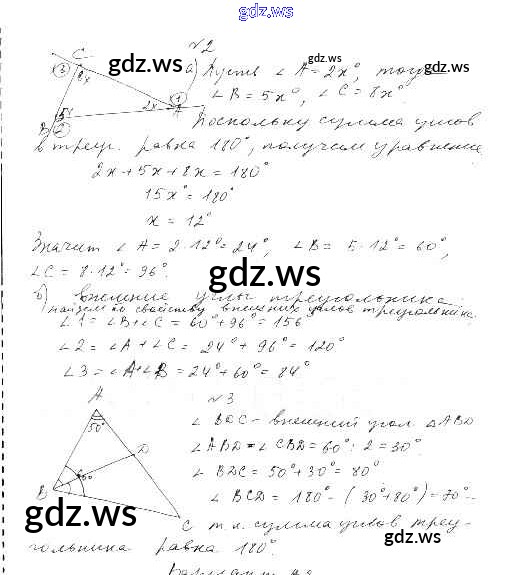 gdz.ws
№2
C
3
8x
gdz.ws
а) Пусть ∠A = 2x°, тогда
gdz.ws
∠B = 5x°, ∠C = 8x°.
2x
1
A
5x
B
2
Поскольку сумма углов
в треуг. равна 180°, получим уравнение
2x + 5x + 8x = 180°
15x° = 180°
x = 12°
Значит ∠A = 2·12° = 24°, ∠B = 5·12° = 60°,
∠C = 8·12° = 96°.
gdz.ws
б) внешние углы треугольника
найдем по свойству внешних углов треугольника.
∠1 = ∠B + ∠C = 60° + 96° = 156
∠2 = ∠A + ∠C = 24° + 96° = 120°
∠3 = ∠A + ∠B = 24° + 60° = 84°
№3
A
50°
∠BDC - внешний угол △ABD
D
∠ABD = ∠CBD = 60° : 2 = 30°.
60°
∠BDC = 50° + 30° = 80°
B
∠BCD = 180° - (30° + 80°) = 70° -
gdz.ws
C
т.к. сумма углов треу-
gdz.ws
гольника равна 180°.
gdz.ws
Вариант